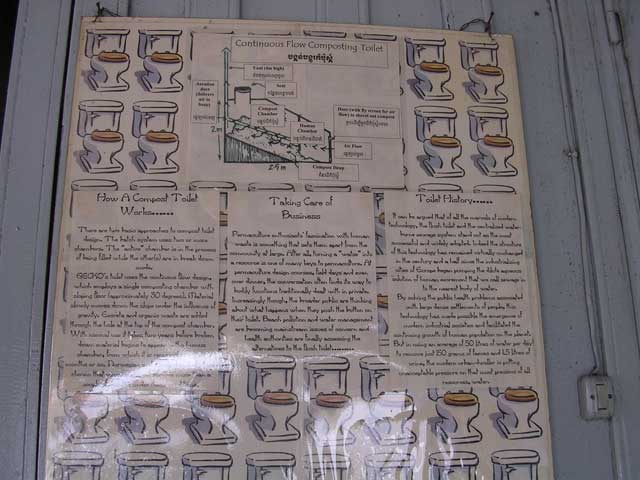 Continuous Flow Composting Toilet
Vent (4m high)
Aeration
duct (delivers
air to
heap)
Seat
Compost
Chamber
Human
Chamber
Door (with fly screen for air
flow) to shovel out compost
Air Flow
Compost Heap
2 m
How A Compost Toilet
Works......
There are two basic approaches to compost toilet
design. The batch system uses two or more
chambers. The "active" chamber is in the process
of being filled while the other(s) are in break down
works.
GECKO's toilet uses the continuous flow design,
which employs a single composting chamber with
sloping floor (approximately 30 degrees). Material
slowly moves down the slope under the influence of
gravity. Excreta and organic waste are added
through the hole at the top of the compost chamber.
With normal use it takes two years before broken
down material begins to appear in the
chamber, from which it is
months or so.
Taking Care of
Business
Permaculture enthusiasts' fascination with human
waste is something that sets them apart from the
community at large. After all, turning a "waste" into
a resource is one of many keys to permaculture. At
permaculture design courses, field days and even
over dinner, the conversation often finds its way to
bodily functions traditionally dealt with in private.
Increasingly though, the broader public are thinking
about what happens when they push the button on
their toilet. Beach pollution and water management
are becoming mainstream issues of concern and
health authorities are finally assessing the
alternatives to the flush toilet.......
Toilet History......
It can be argued that of all the marvels of modern
technology, the flush toilet and the centralized water-
borne sewerage system stand out as the most
successful and widely adopted. Indeed the structure of
this technology has remained virtually unchanged
in the century and a half since the industrialising
cities of Europe began pumping the dilute aqueous
solution of human excrement that we call sewage
to the nearest body of water.
By solving the public health problems associated
with large dense settlements of people, this
technology has made possible the emergence of
modern industrial societies and facilitated the
continuing growth of human population on the planet.
But in using an average of 50 litres of water per day
to remove just 150 grams of faeces and 1.5 litres of
urine, the modern urban-dweller is putting
unacceptable pressure on that most precious of all
resources, water.